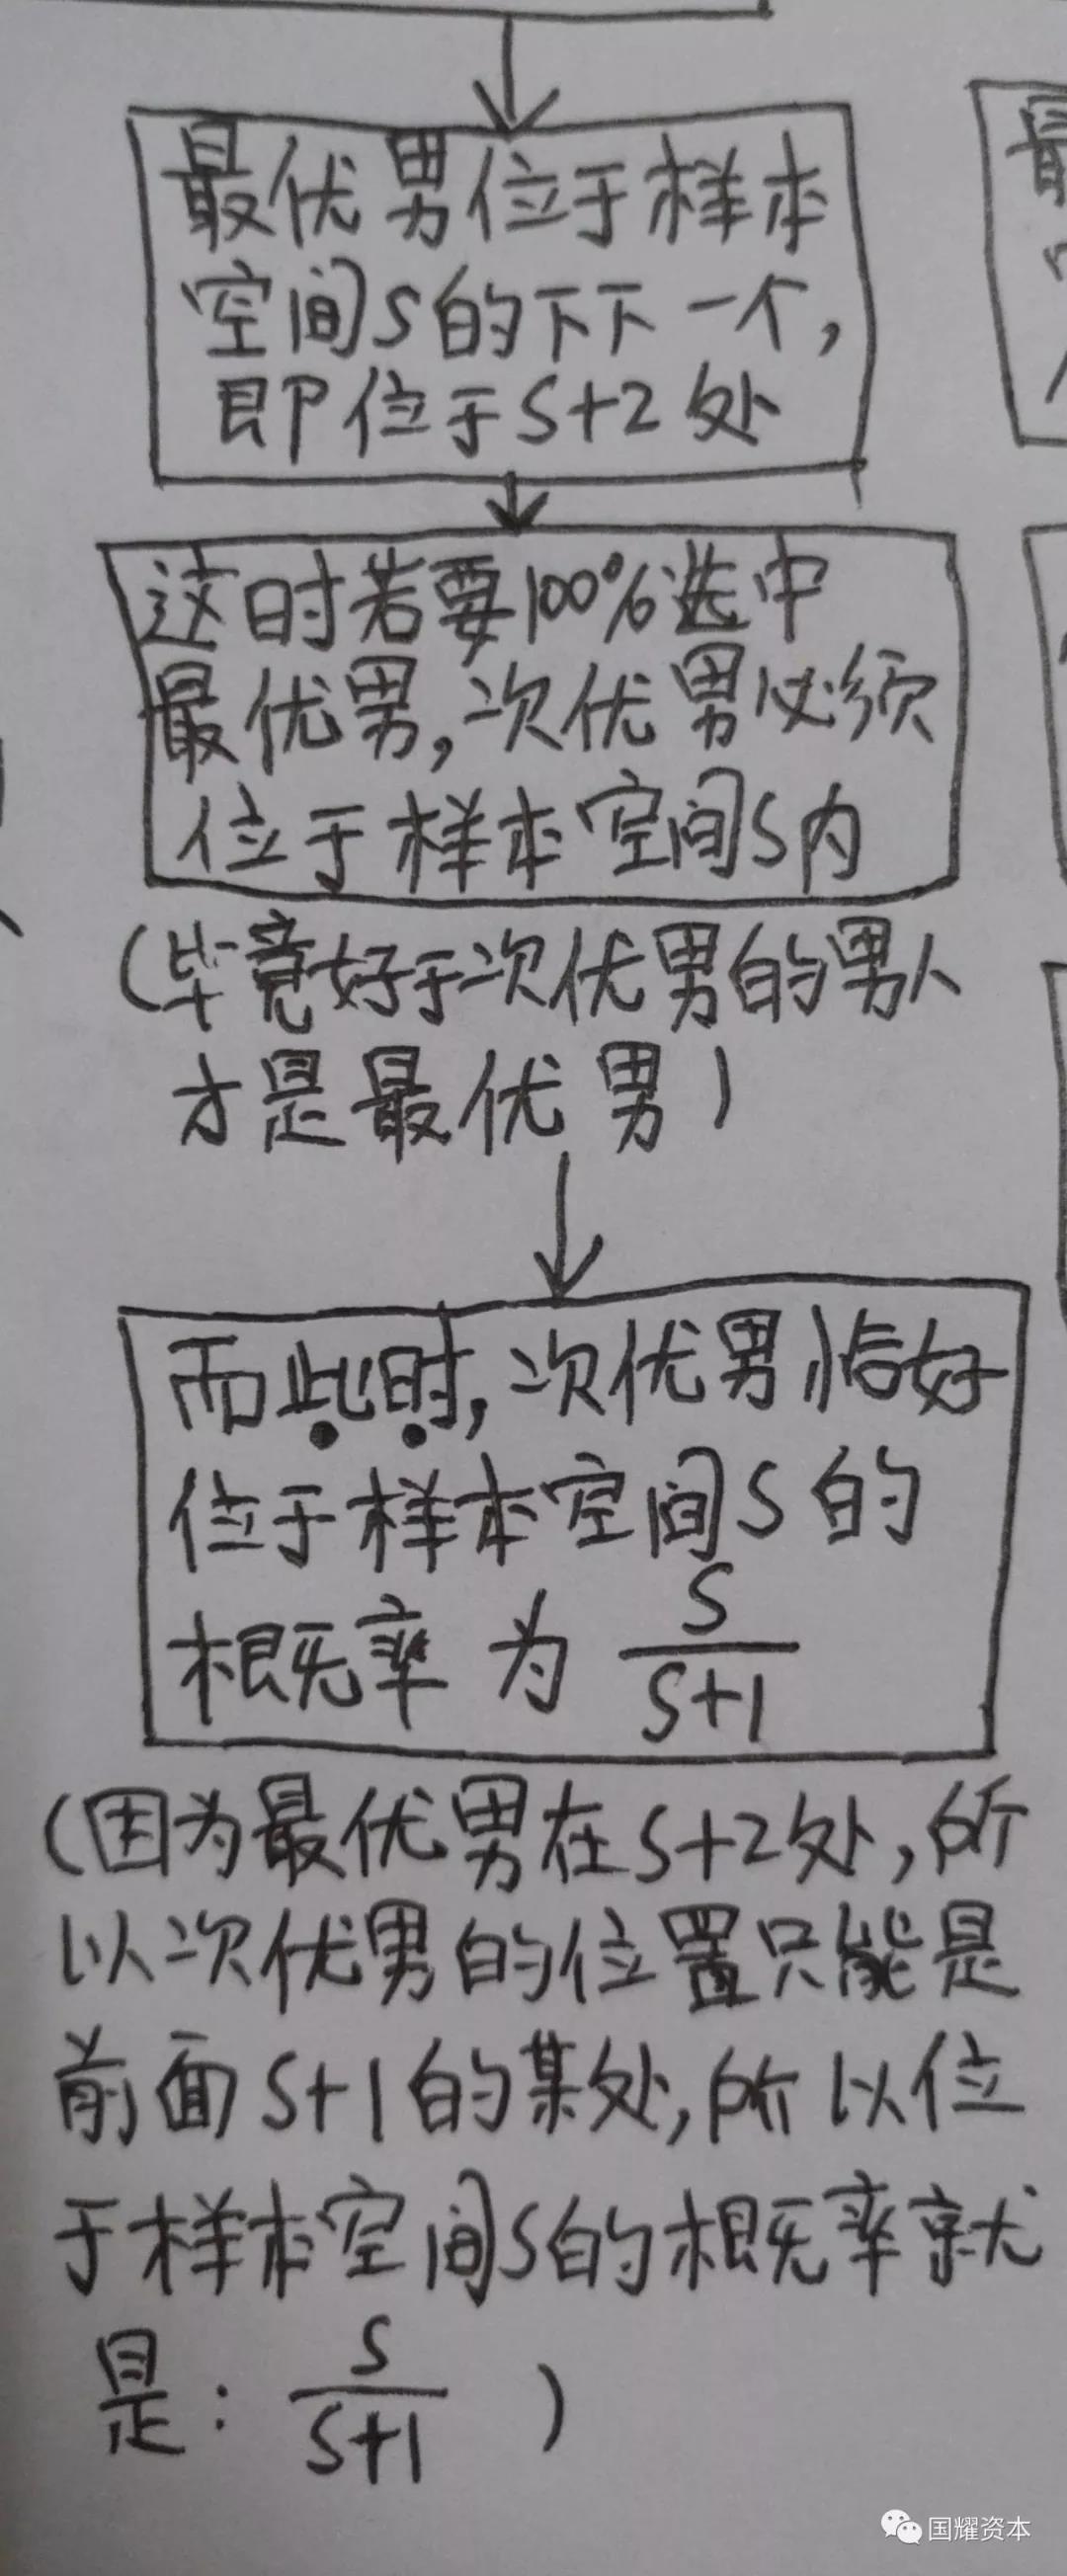 最优男位于样本
空间S的下下一个,
即位于S+2处
这时若要100%选中
最优男,次优男必须
位于样本空间S内
(毕竟好于次优男的男人
才是最优男)
而此时,次优男恰好
位于样本空间S的
概率为 S/(S+1)
(因为最优男在S+2处,所
以次优男的位置只能是
前面S+1的某处,所以位
于样本空间S的概率就
是: S/(S+1) )
国耀资本